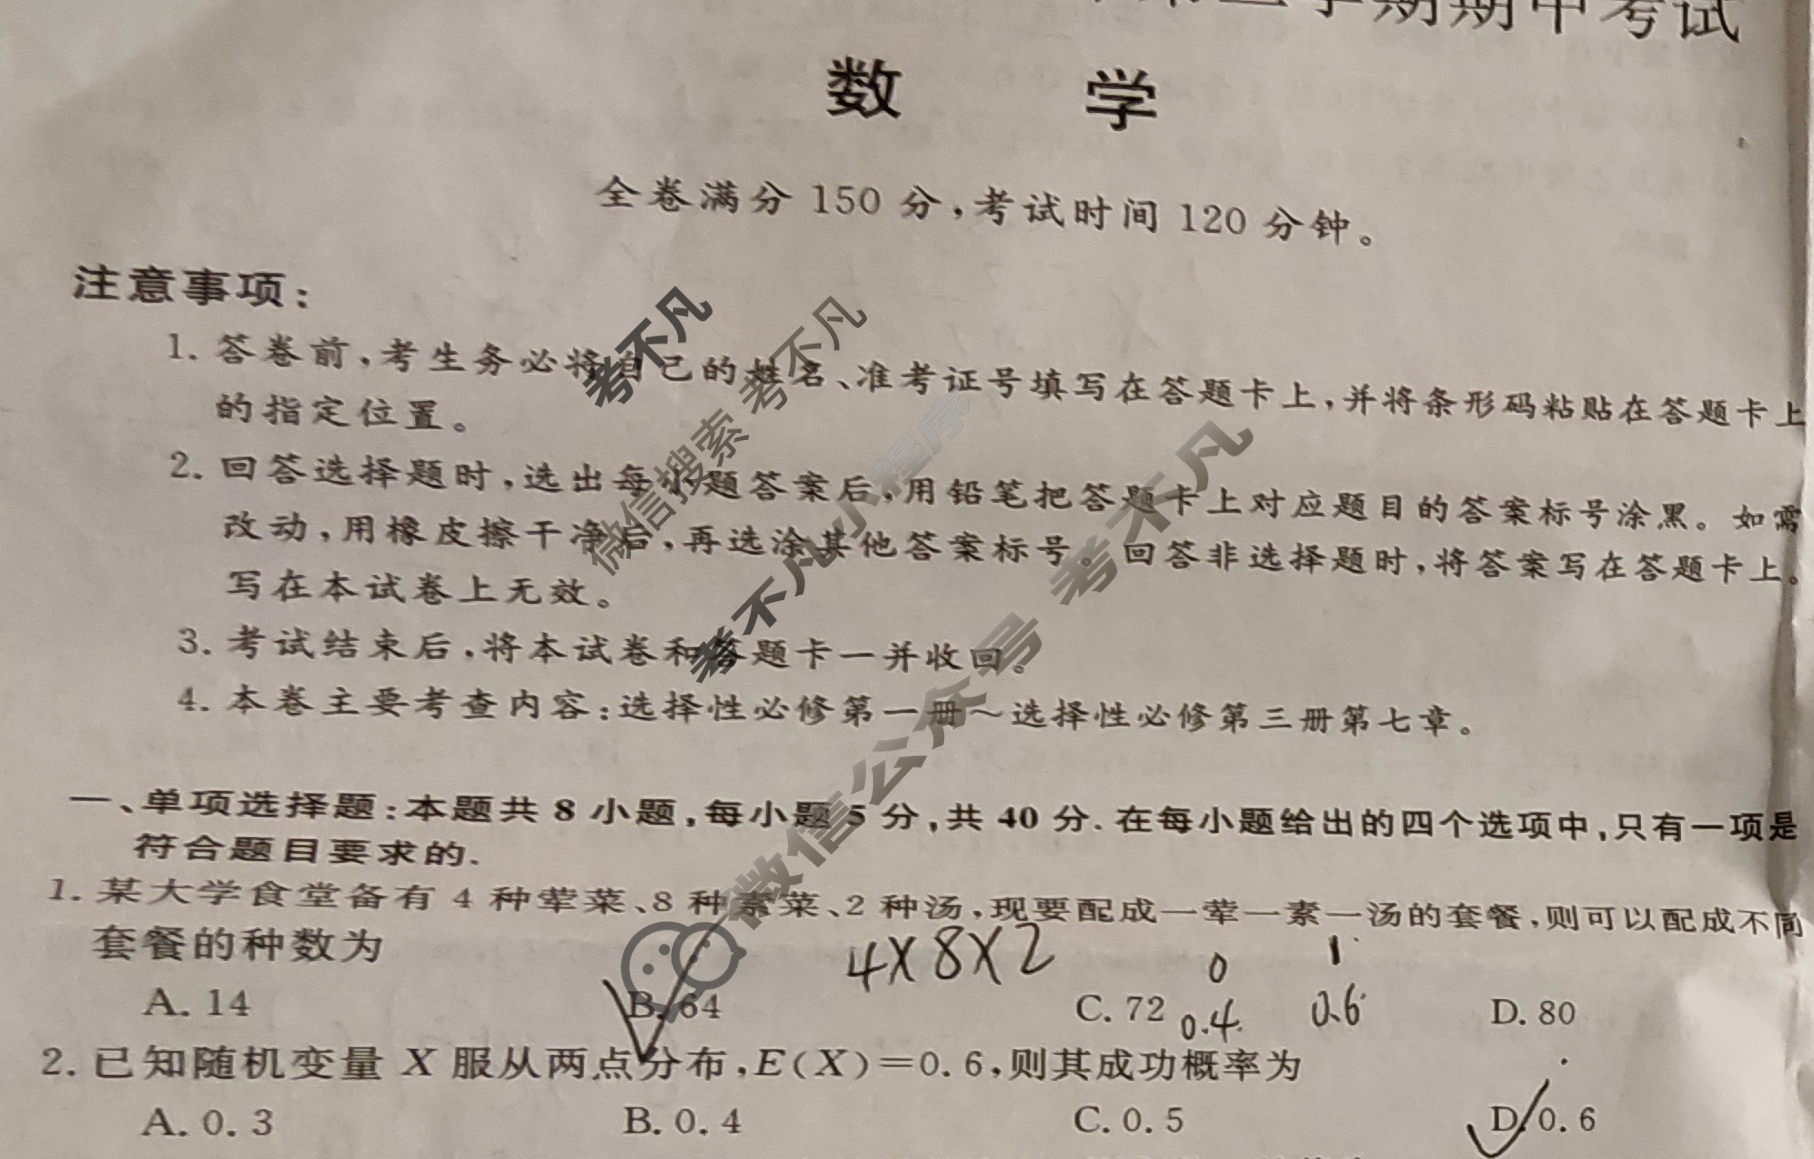 学期期中考试
数 学
全卷满分 150 分,考试时间 120 分钟。
注意事项:
1. 答卷前,考生务必将自己的姓名、准考证号填写在答题卡上,并将条形码粘贴在答题卡上
的指定位置。
2. 回答选择题时,选出每小题答案后,用铅笔把答题卡上对应题目的答案标号涂黑。如需
改动,用橡皮擦干净后,再选涂其他答案标号。回答非选择题时,将答案写在答题卡上。
写在本试卷上无效。
3. 考试结束后,将本试卷和答题卡一并收回。
4. 本卷主要考查内容:选择性必修第一册~选择性必修第三册第七章。
一、单项选择题:本题共 8 小题,每小题 5 分,共 40 分. 在每小题给出的四个选项中,只有一项是
符合题目要求的.
1. 某大学食堂备有 4 种荤菜、8 种素菜、2 种汤,现要配成一荤一素一汤的套餐,则可以配成不同
套餐的种数为
4×8×2
0 1
A. 14 B. 64 C. 72 D. 80
0.4 0.6
2. 已知随机变量 X 服从两点分布,E(X)=0.6,则其成功概率为
A. 0.3 B. 0.4 C. 0.5 D. 0.6
考不凡
微信搜索 考不凡
考不凡小程序
微信公众号 考不凡